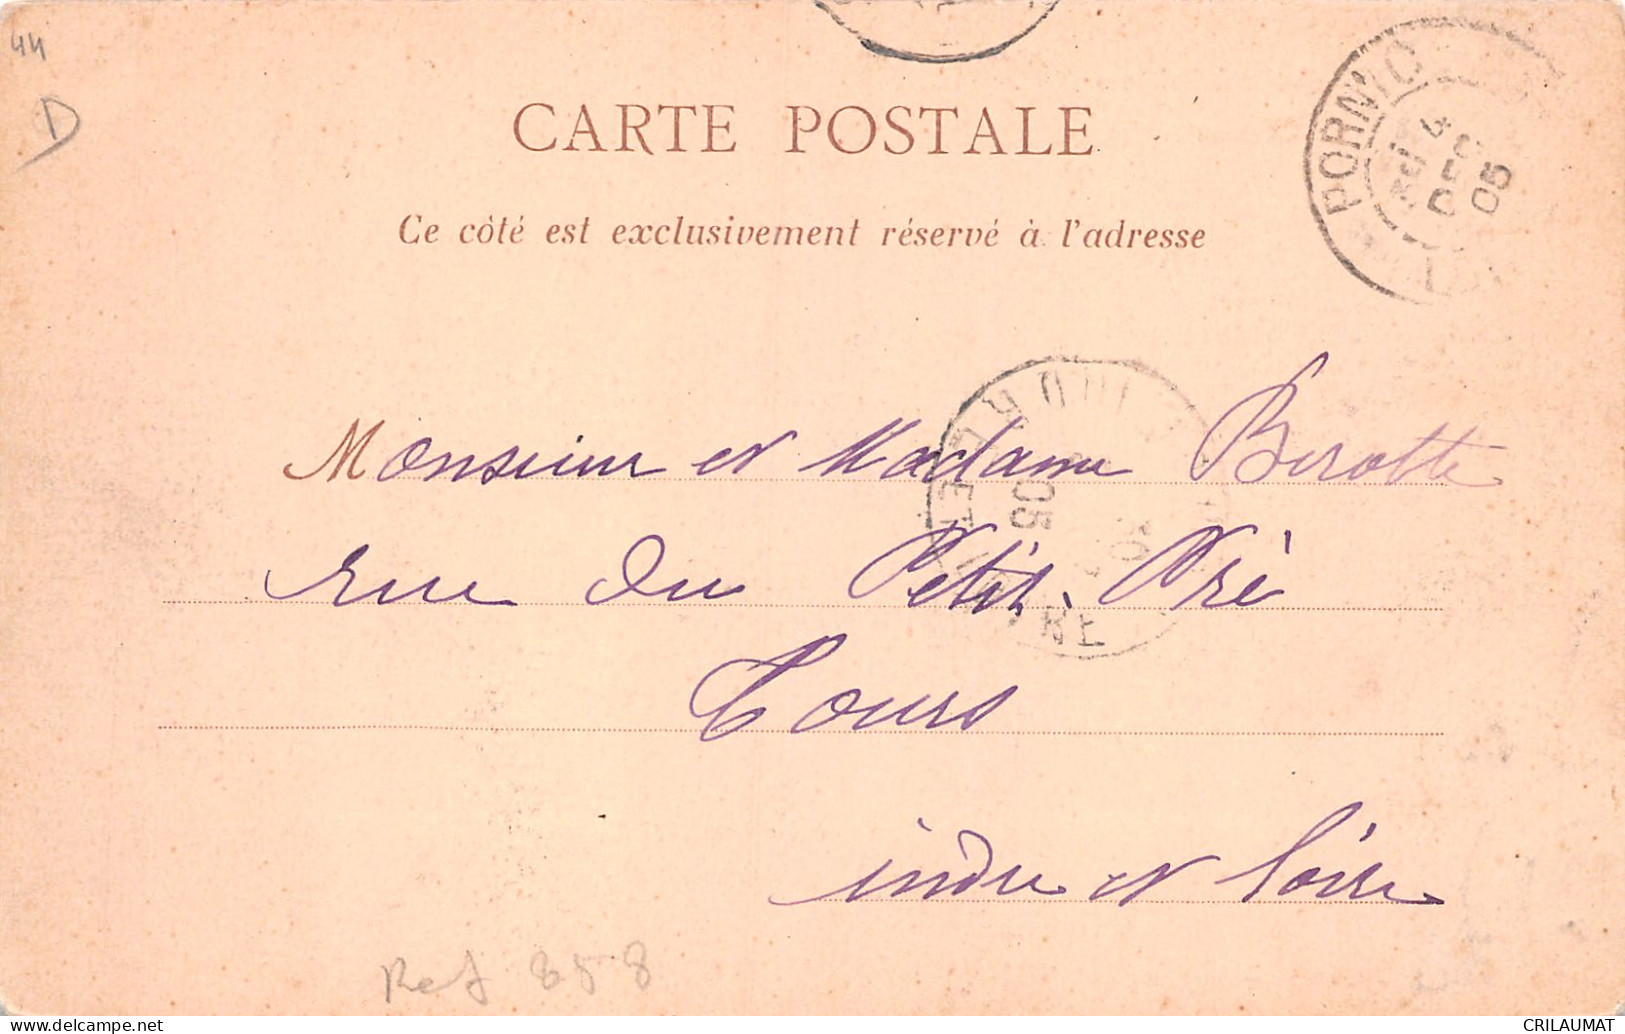 44
D
CARTE POSTALE
Ce côté est exclusivement réservé à l'adresse
PORNIC
4
DEC
05
Monsieur et Madame Birotte
rue du Petit-Pré
Tours
indre et loire
05
30
Ref 858
CRILAUMAT